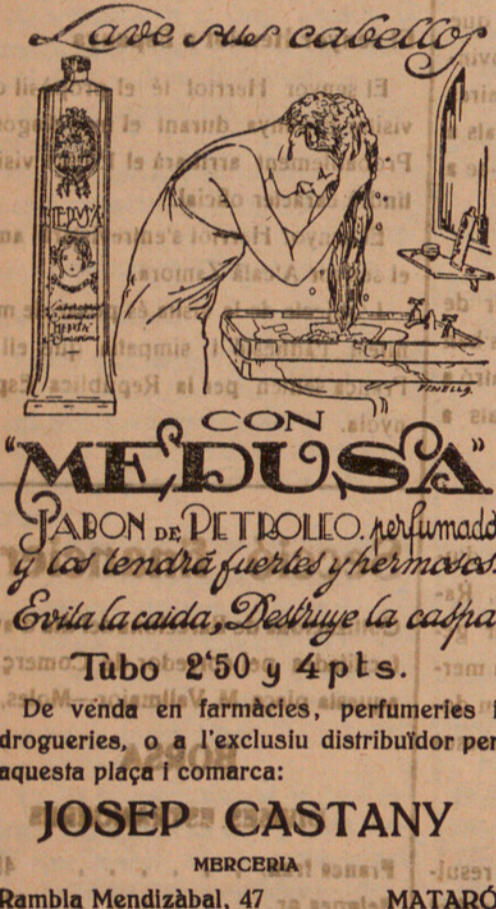 Lave sus cabellos
MEDUSA
CON
"MEDUSA"
JABON DE PETROLEO. perfumado
y los tendrá fuertes y hermosos.
Evita la caida, Destruye la caspa
Tubo 2'50 y 4 pts.
De venda en farmàcies, perfumeries i
drogueries, o a l'exclusiu distribuïdor per
aquesta plaça i comarca:
JOSEP CASTANY
MERCERIA
Rambla Mendizàbal, 47 MATARÓ